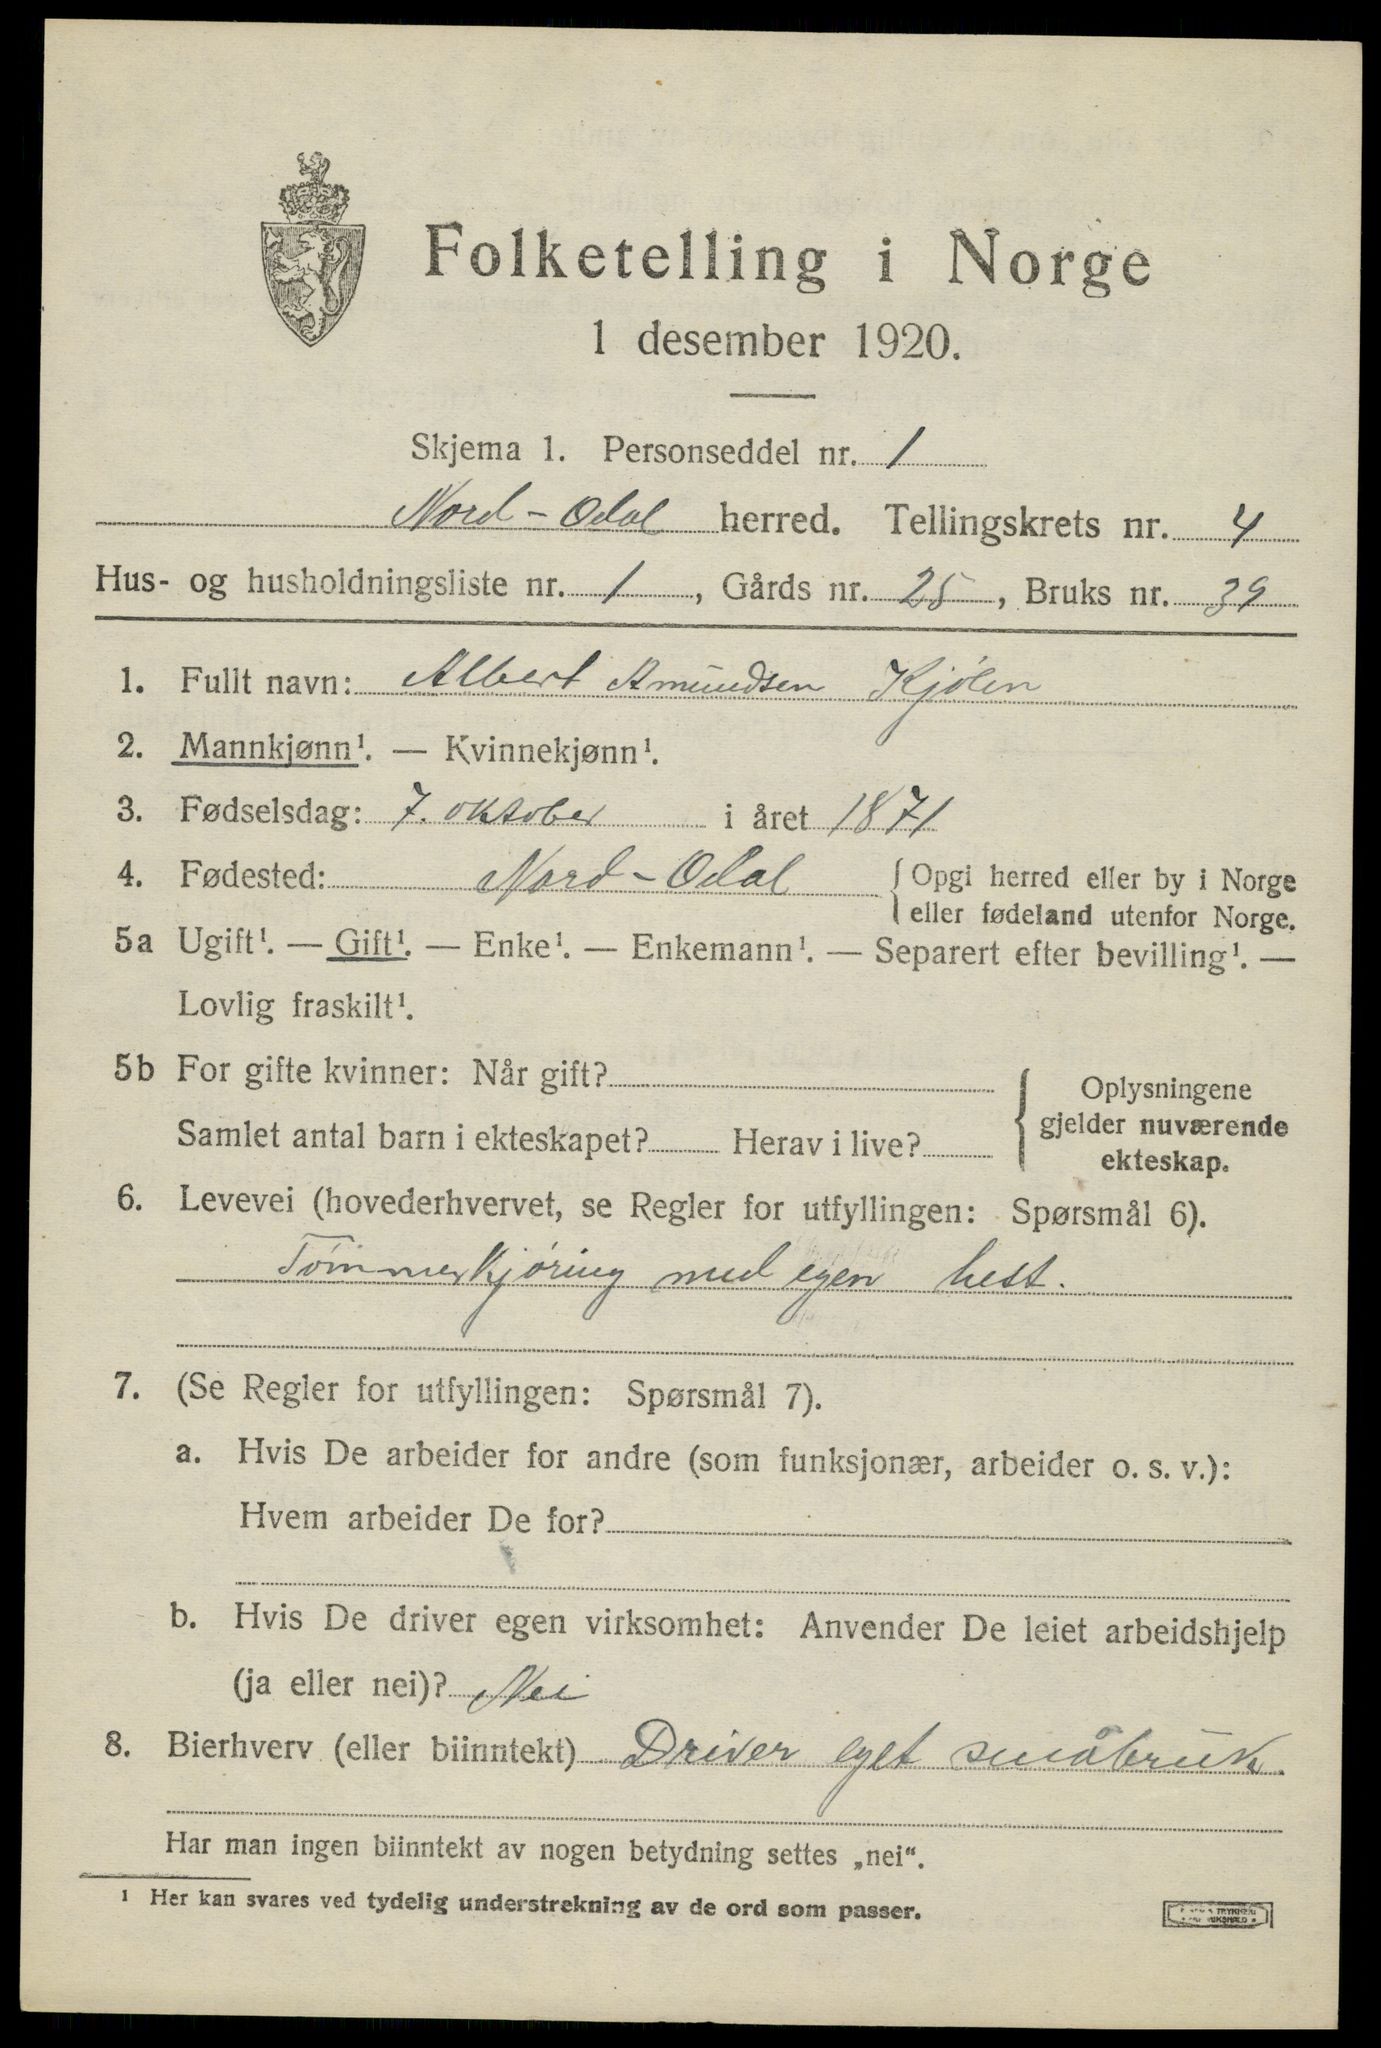 Folketelling i Norge
1 desember 1920.
Skjema 1. Personseddel nr. 1
Nord-Odal herred. Tellingskrets nr. 4
Hus- og husholdningsliste nr. 1, Gårds nr. 25, Bruks nr. 39
1. Fullt navn: Albert Amundsen Kjølen
2. Mannkjønn¹. — Kvinnekjønn¹.
3. Fødselsdag: 7. oktober i året 1871
4. Fødested: Nord-Odal { Opgi herred eller by i Norge
eller fødeland utenfor Norge.
5a Ugift¹. — Gift¹. — Enke¹. — Enkemann¹. — Separert efter bevilling¹. —
Lovlig fraskilt¹.
5b For gifte kvinner: Når gift?
Samlet antal barn i ekteskapet? Herav i live?
{ Oplysningene
gjelder nuværende
ekteskap.
6. Levevei (hovederhvervet, se Regler for utfyllingen: Spørsmål 6).
Tømmerkjøring med egen hest.
7. (Se Regler for utfyllingen: Spørsmål 7).
a. Hvis De arbeider for andre (som funksjonær, arbeider o. s. v.):
Hvem arbeider De for?
b. Hvis De driver egen virksomhet: Anvender De leiet arbeidshjelp
(ja eller nei)? Nei
8. Bierhverv (eller biinntekt) Driver eget småbruk.
Har man ingen biinntekt av nogen betydning settes „nei“.
¹ Her kan svares ved tydelig understrekning av de ord som passer.